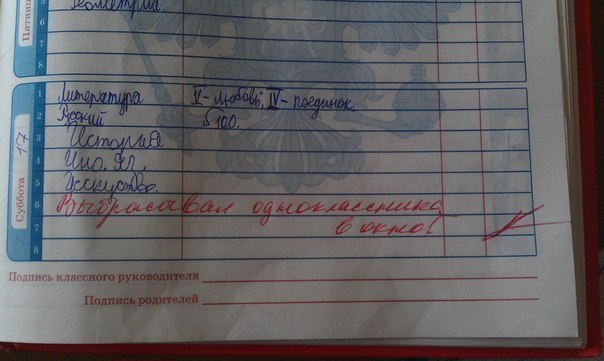 Пятниц
5
Геометрия
6
7
8
Суббота 17
1 Литература V- любовь, IV- поединок.
2 Русский § 100.
3 История
4 Ино. яз.
5 Исскуство.
6 Выбрасывал одноклассника
7 в окно!
8
Подпись классного руководителя
Подпись родителей